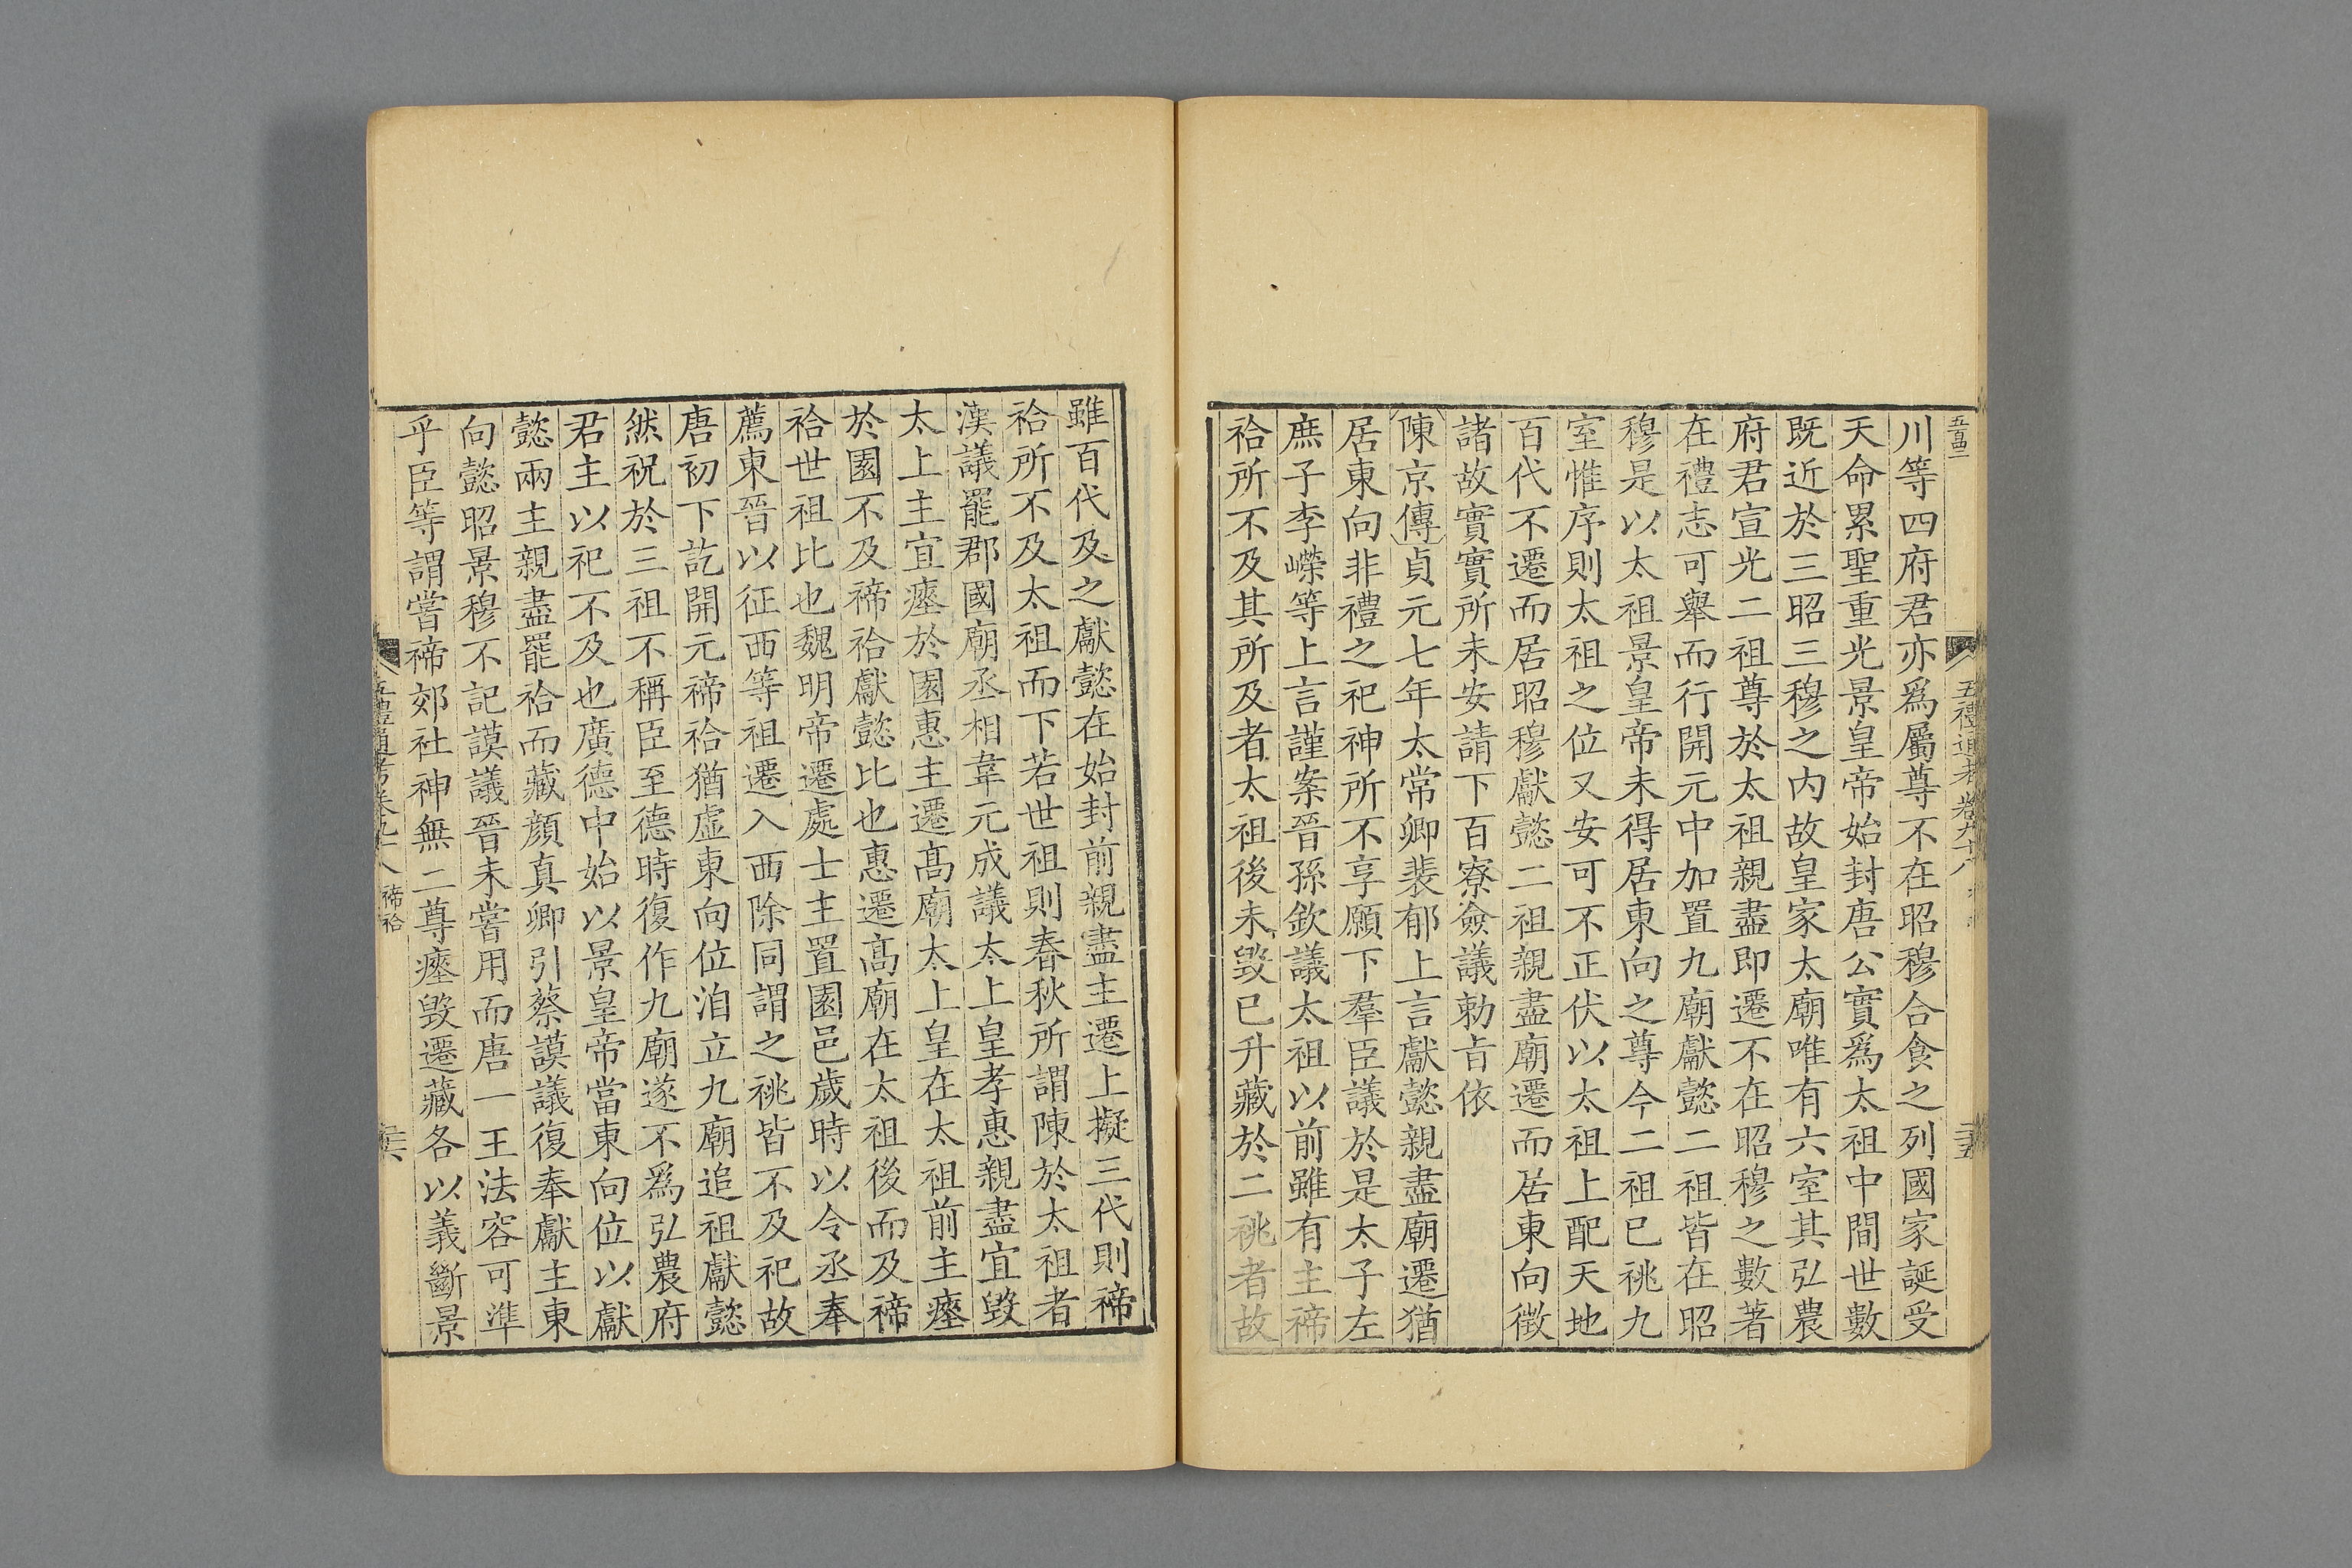 五禮通考卷九十八
川等四府君亦爲屬尊不在昭穆合食之列國家誕受
天命累聖重光景皇帝始封唐公實爲太祖中間世數
既近於三昭三穆之内故皇家太廟唯有六室其弘農
府君宣光二祖尊於太祖親盡即遷不在昭穆之數著
在禮志可舉而行開元中加置九廟獻懿二祖皆在昭
穆是以太祖景皇帝未得居東向之尊今二祖已祧九
室惟序則太祖之位又安可不正伏以太祖上配天地
百代不遷而居昭穆獻懿二祖親盡廟遷而居東向徵
諸故實實所未安請下百寮僉議勅旨依
陳京傳貞元七年太常卿裴郁上言獻懿親盡廟遷猶
居東向非禮之祀神所不享願下羣臣議於是太子左
庶子李嶸等上言謹案晉孫欽議太祖以前雖有主禘
祫所不及其所及者太祖後未毀已升藏於二祧者故
雖百代及之獻懿在始封前親盡主遷上擬三代則禘
祫所不及太祖而下若世祖則春秋所謂陳於太祖者
漢議罷郡國廟丞相韋元成議太上皇孝惠親盡宜毀
太上主宜瘞於園惠主遷高廟太上皇在太祖前主瘞
於園不及禘祫獻懿比也惠遷高廟在太祖後而及禘
祫世祖比也魏明帝遷處士主置園邑歲時以令丞奉
薦東晉以征西等祖遷入西除同謂之祧皆不及祀故
唐初下訖開元禘祫猶虛東向位洎立九廟追祖獻懿
然祝於三祖不稱臣至德時復作九廟遂不爲弘農府
君主以祀不及也廣德中始以景皇帝當東向位以獻
懿兩主親盡罷祫而藏顔真卿引蔡謨議復奉獻主東
向懿昭景穆不記謨議晉未嘗用而唐一王法容可準
乎臣等謂嘗禘郊社神無二尊瘞毀遷藏各以義斷景
五禮通考卷九十八 禘祫